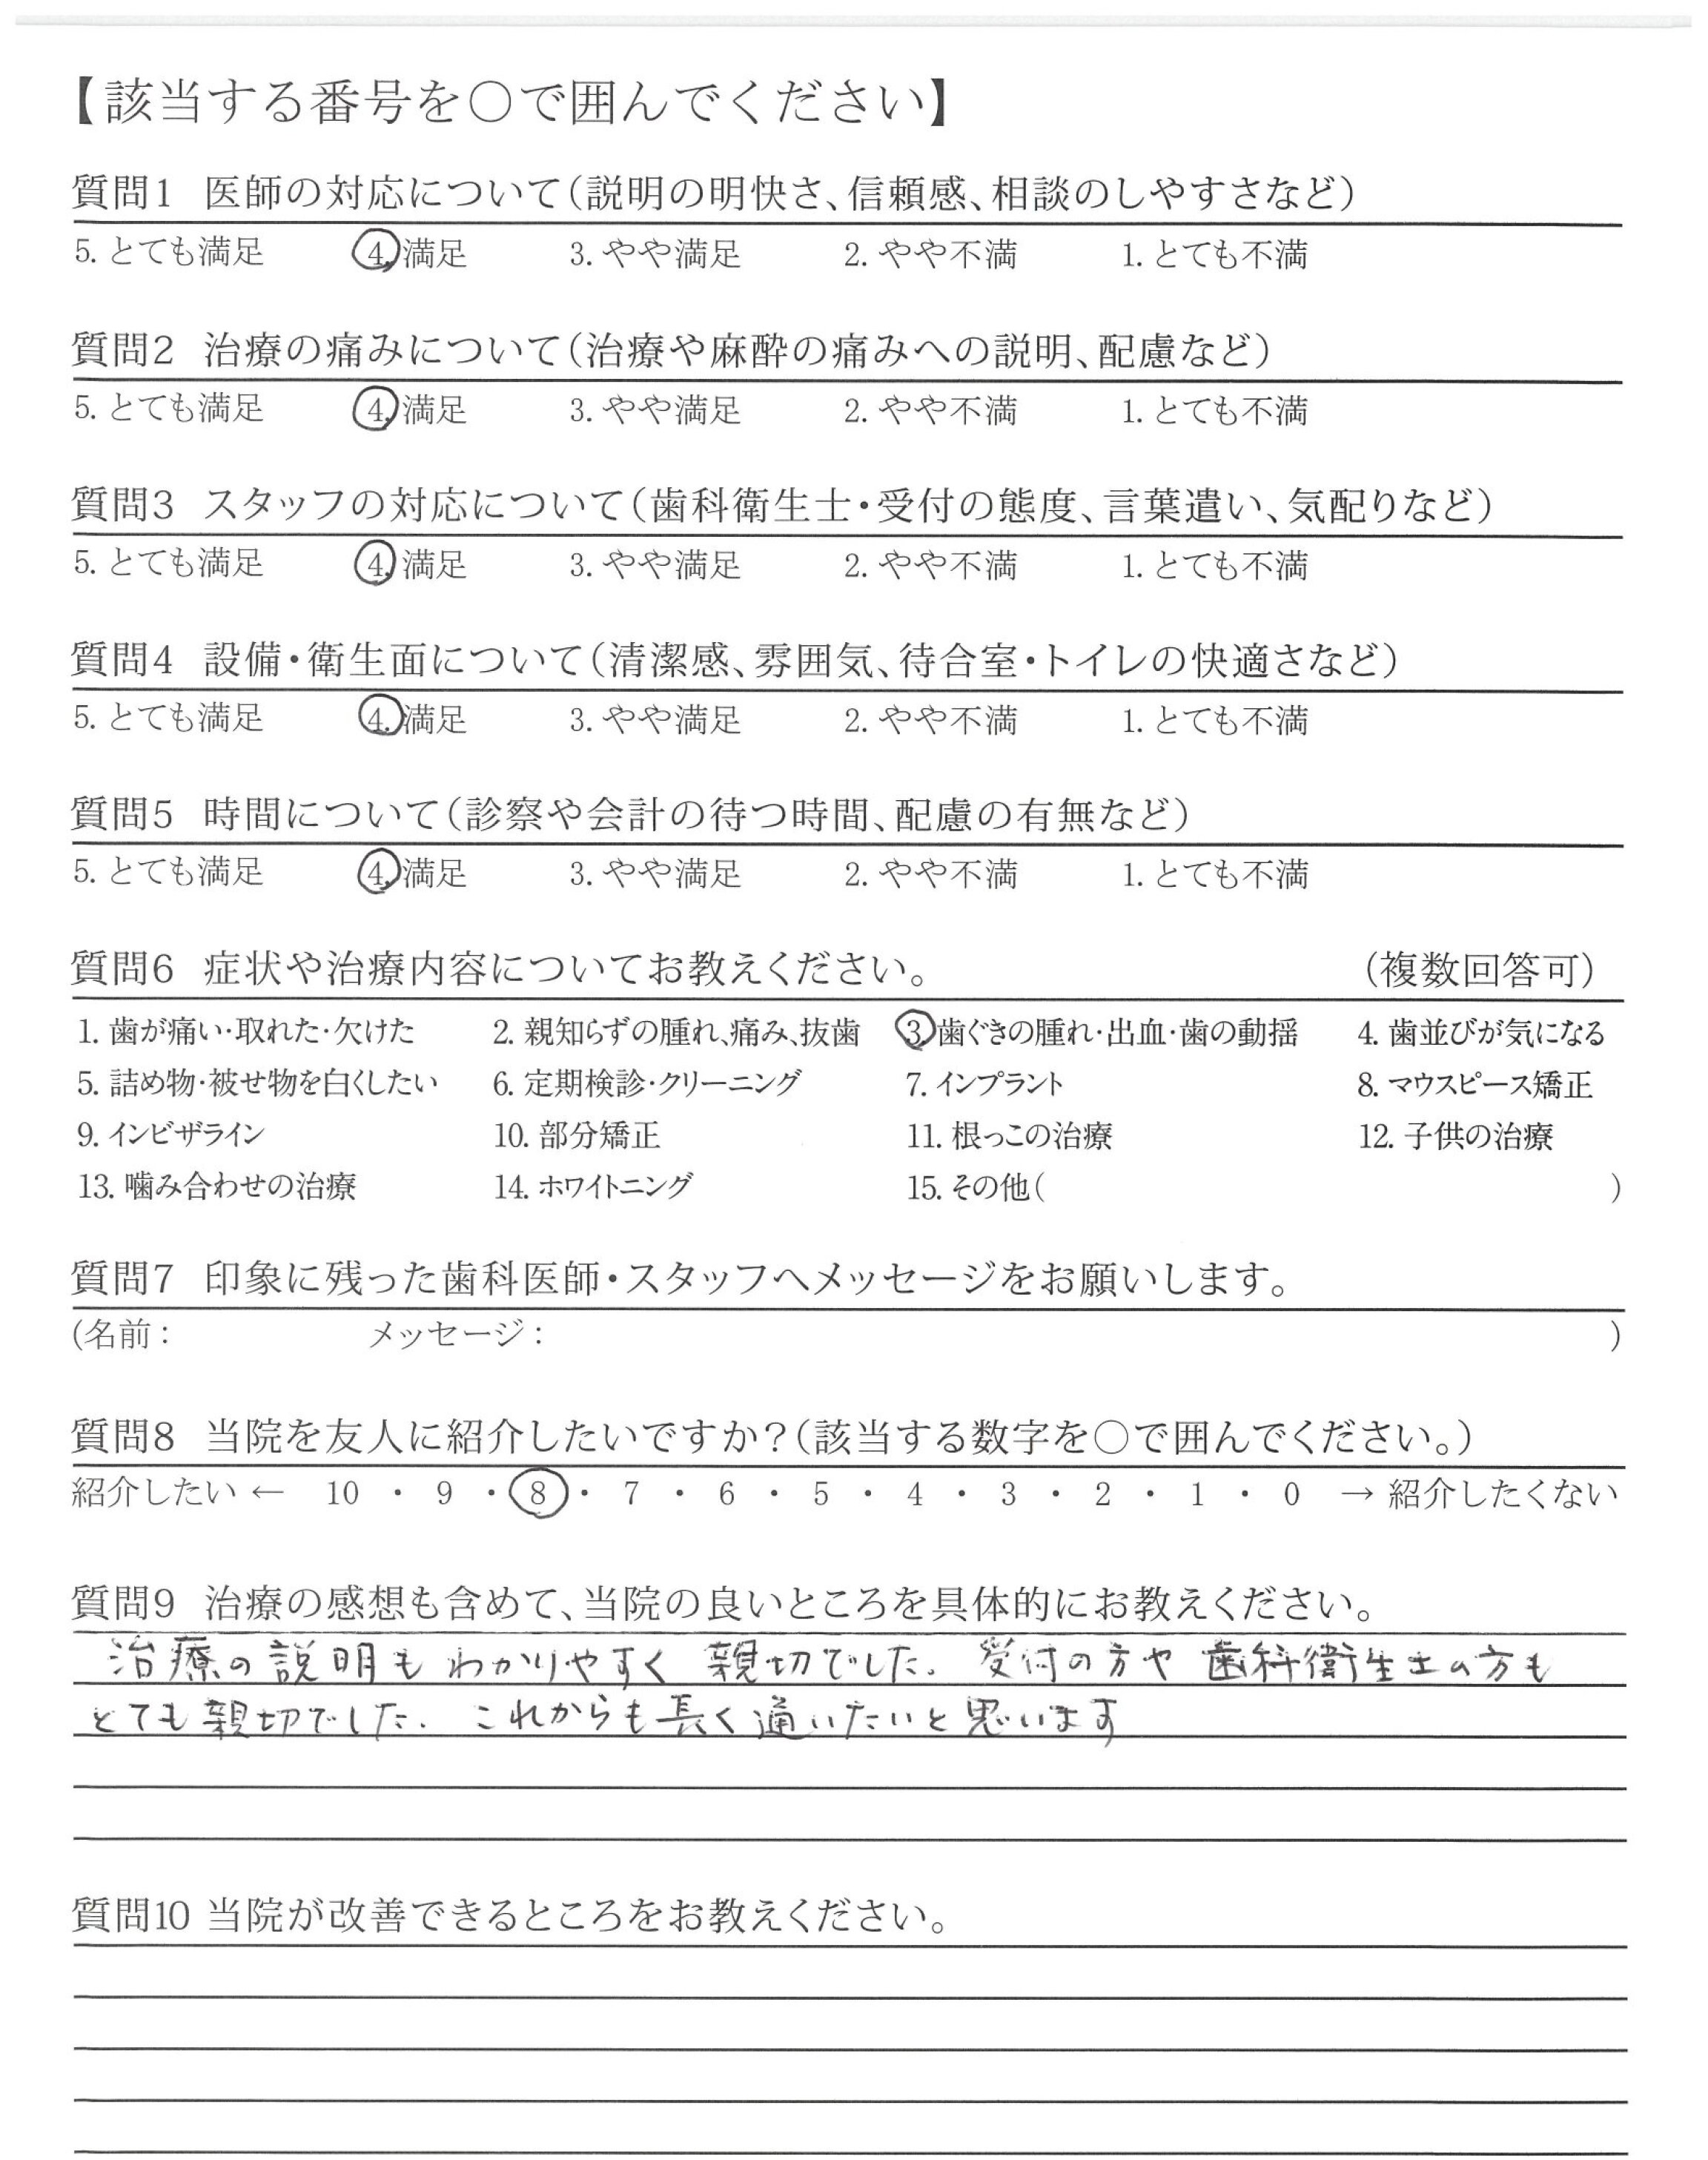 【該当する番号を○で囲んでください】
質問1 医師の対応について(説明の明快さ、信頼感、相談のしやすさなど)
5. とても満足 4. 満足 3. やや満足 2. やや不満 1. とても不満
質問2 治療の痛みについて(治療や麻酔の痛みへの説明、配慮など)
5. とても満足 4. 満足 3. やや満足 2. やや不満 1. とても不満
質問3 スタッフの対応について(歯科衛生士・受付の態度、言葉遣い、気配りなど)
5. とても満足 4. 満足 3. やや満足 2. やや不満 1. とても不満
質問4 設備・衛生面について(清潔感、雰囲気、待合室・トイレの快適さなど)
5. とても満足 4. 満足 3. やや満足 2. やや不満 1. とても不満
質問5 時間について(診察や会計の待つ時間、配慮の有無など)
5. とても満足 4. 満足 3. やや満足 2. やや不満 1. とても不満
質問6 症状や治療内容についてお教えください。 (複数回答可)
1. 歯が痛い・取れた・欠けた 2. 親知らずの腫れ、痛み、抜歯 3. 歯ぐきの腫れ・出血・歯の動揺 4. 歯並びが気になる
5. 詰め物・被せ物を白くしたい 6. 定期検診・クリーニング 7. インプラント 8. マウスピース矯正
9. インビザライン 10. 部分矯正 11. 根っこの治療 12. 子供の治療
13. 噛み合わせの治療 14. ホワイトニング 15. その他( )
質問7 印象に残った歯科医師・スタッフへメッセージをお願いします。
(名前: メッセージ: )
質問8 当院を友人に紹介したいですか?(該当する数字を○で囲んでください。)
紹介したい ← 10 ・ 9 ・ 8 ・ 7 ・ 6 ・ 5 ・ 4 ・ 3 ・ 2 ・ 1 ・ 0 → 紹介したくない
質問9 治療の感想も含めて、当院の良いところを具体的にお教えください。
治療の説明もわかりやすく 親切でした。受付の方や 歯科衛生士の方も
とても親切でした。これからも長く通いたいと思います
質問10 当院が改善できるところをお教えください。